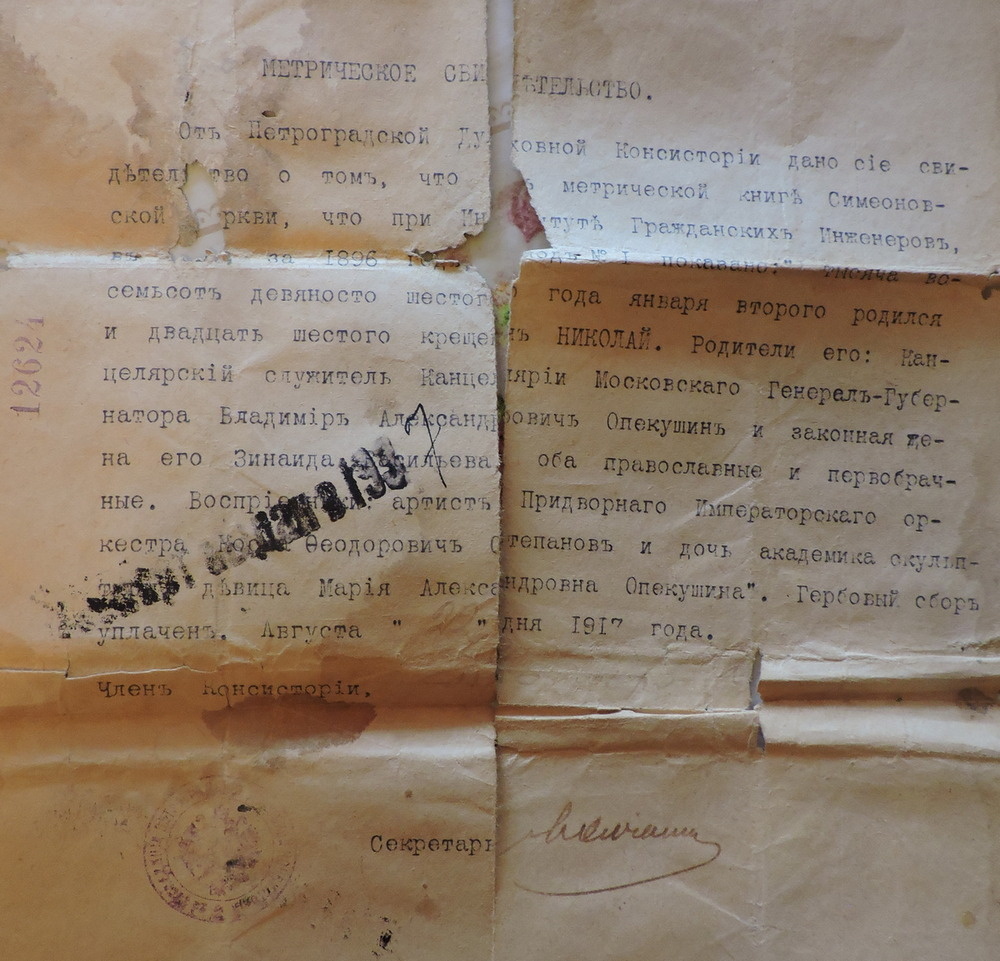 МЕТРИЧЕСКОЕ СВИДѢТЕЛЬСТВО.
Отъ Петроградской Духовной Консисторіи дано сіе сви-
дѣтельство о томъ, что въ метрической книгѣ Симеонов-
ской церкви, что при Институтѣ Гражданскихъ Инженеровъ,
за 1896 годъ подъ № 1 показано:" тысяча во-
семьсотъ девяносто шестого года января второго родился
и двадцать шестого крещенъ НИКОЛАЙ. Родители его: Кан-
целярскій служитель Канцеляріи Московскаго Генералъ-Губер-
натора Владиміръ Александровичъ Опекушинъ и законная же-
на его Зинаида Васильева, оба православные и первобрач-
ные. Воспріемники: артистъ Придворнаго Императорскаго ор-
кестра Ѳеодоровичъ Степановъ и дочь академика скульп-
дѣвица Марія Александровна Опекушина". Гербовый сборъ
уплаченъ. Августа " " дня 1917 года.
Членъ Консисторіи,
Секретарь
12624